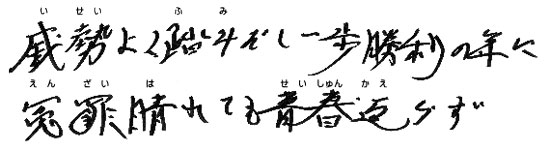 い せい ふ み
威勢よく踏みだし一歩勝利の年に
えん ざい は せい しゅん かえ
冤罪晴れても青春返らず